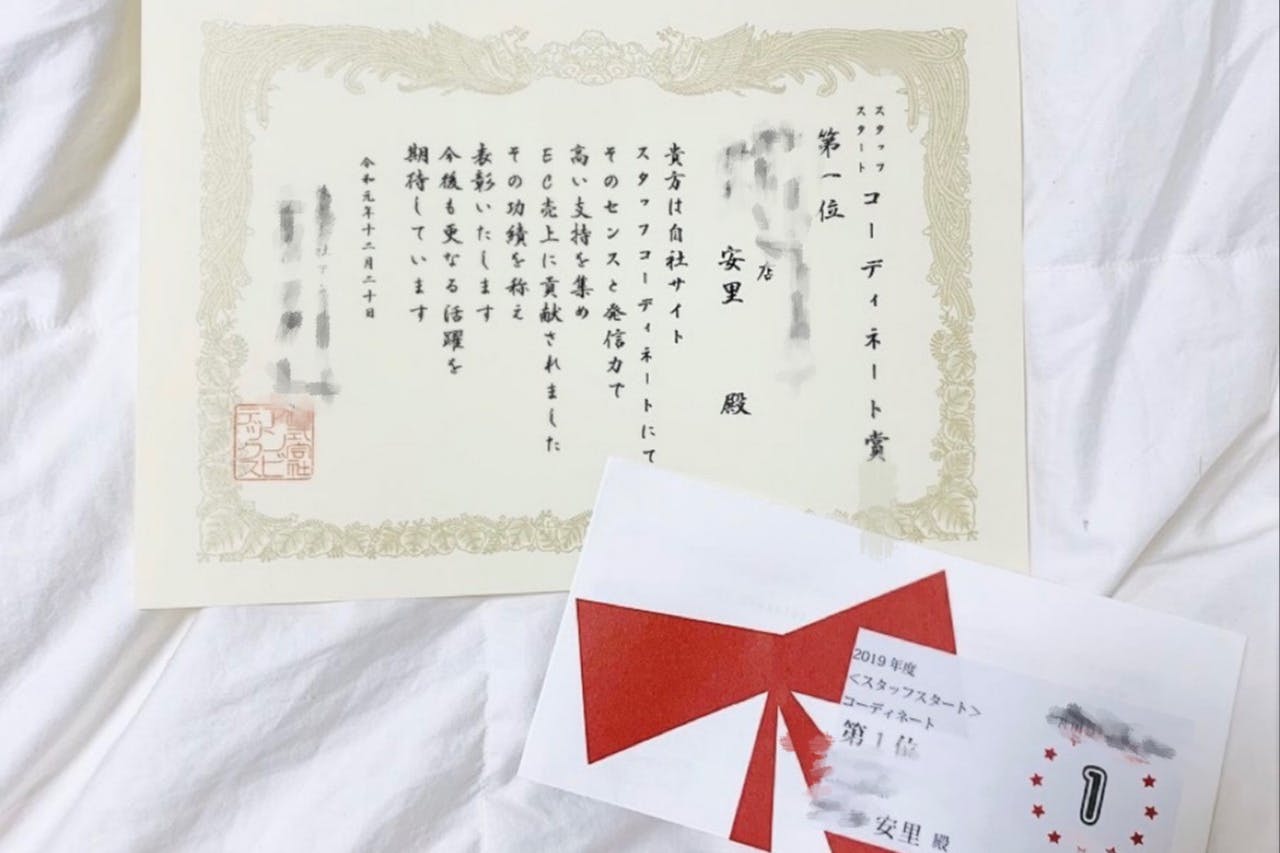 スタッフ
スタート
コーディネート賞
第一位
店
安里 殿
貴方は自社サイト
スタッフコーディネートにて
そのセンスと発信力で
高い支持を集め
EC売上に貢献されました
その功績を称え
表彰いたします
今後も更なる活躍を
期待しています
令和元年十二月二十日
2019年度
<スタッフスタート>
コーディネート
第1位
安里 殿
1